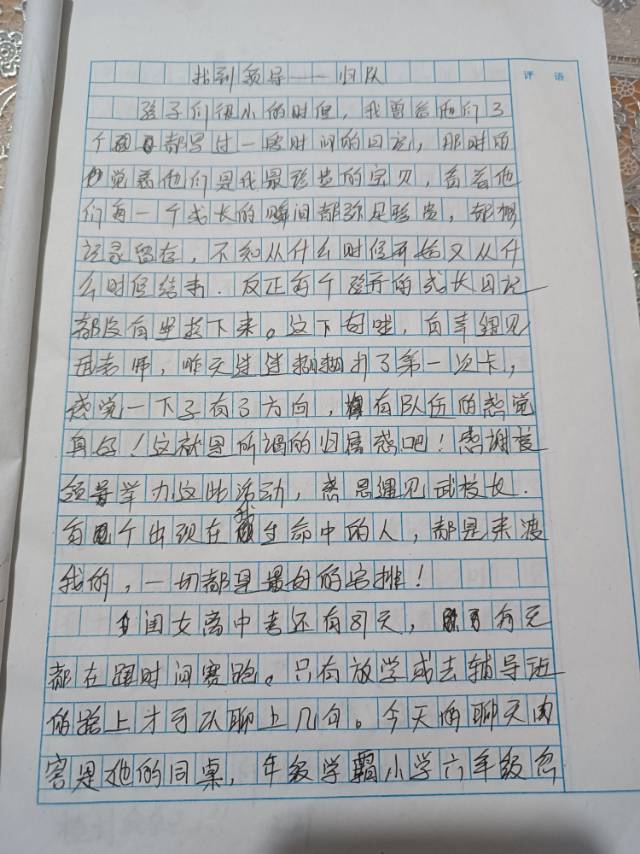 找到领导——归队
评语
孩子们很小的时候，我曾给他们3
个都写过一段时间的日记，那时候
觉着他们是我最珍贵的宝贝，看着他
们每一个成长的瞬间都弥足珍贵，都想
记录留存，不知从什么时候开始又从什
么时候结束．反正每个孩子的成长日记
都没有坚持下来。这下好啦，有幸遇见
武老师，昨天迷迷糊糊打了第一次卡，
感觉一下子有了方向，有队伍的感觉
真好！这就是所谓的归属感吧！感谢校
领导举办这些活动，感恩遇见武校长．
每个出现在我生命中的人，都是来渡
我的，一切都是最好的安排！
闺女离中考还有87天，每天
都在跟时间赛跑。只有放学或去辅导班
的路上才可以聊上几句。今天的聊天内
容是她的同桌，年级学霸小学六年级忽